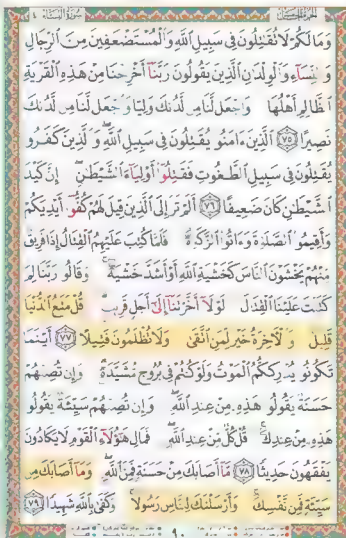 الجزء الخامس سورة النساء ٤
وَمَا لَكُمْ لَا تُقَٰتِلُونَ فِى سَبِيلِ ٱللَّهِ وَٱلْمُسْتَضْعَفِينَ مِنَ ٱلرِّجَالِ
وَٱلنِّسَآءِ وَٱلْوِلْدَٰنِ ٱلَّذِينَ يَقُولُونَ رَبَّنَآ أَخْرِجْنَا مِنْ هَٰذِهِ ٱلْقَرْيَةِ
ٱلظَّالِمِ أَهْلُهَا وَٱجْعَل لَّنَا مِن لَّدُنكَ وَلِيًّا وَٱجْعَل لَّنَا مِن لَّدُنكَ
نَصِيرًا ٧٥ ٱلَّذِينَ ءَامَنُوا۟ يُقَٰتِلُونَ فِى سَبِيلِ ٱللَّهِ وَٱلَّذِينَ كَفَرُوا۟
يُقَٰتِلُونَ فِى سَبِيلِ ٱلطَّٰغُوتِ فَقَٰتِلُوٓا۟ أَوْلِيَآءَ ٱلشَّيْطَٰنِ إِنَّ كَيْدَ
ٱلشَّيْطَٰنِ كَانَ ضَعِيفًا ٧٦ أَلَمْ تَرَ إِلَى ٱلَّذِينَ قِيلَ لَهُمْ كُفُّوٓا۟ أَيْدِيَكُمْ
وَأَقِيمُوا۟ ٱلصَّلَوٰةَ وَءَاتُوا۟ ٱلزَّكَوٰةَ فَلَمَّا كُتِبَ عَلَيْهِمُ ٱلْقِتَالُ إِذَا فَرِيقٌ
مِّنْهُمْ يَخْشَوْنَ ٱلنَّاسَ كَخَشْيَةِ ٱللَّهِ أَوْ أَشَدَّ خَشْيَةً وَقَالُوا۟ رَبَّنَا لِمَ
كَتَبْتَ عَلَيْنَا ٱلْقِتَالَ لَوْلَآ أَخَّرْتَنَآ إِلَىٰٓ أَجَلٍ قَرِيبٍ قُلْ مَتَٰعُ ٱلدُّنْيَا
قَلِيلٌ وَٱلْءَاخِرَةُ خَيْرٌ لِّمَنِ ٱتَّقَىٰ وَلَا تُظْلَمُونَ فَتِيلًا ٧٧ أَيْنَمَا
تَكُونُوا۟ يُدْرِككُّمُ ٱلْمَوْتُ وَلَوْ كُنتُمْ فِى بُرُوجٍ مُّشَيَّدَةٍ وَإِن تُصِبْهُمْ
حَسَنَةٌ يَقُولُوا۟ هَٰذِهِۦ مِنْ عِندِ ٱللَّهِ وَإِن تُصِبْهُمْ سَيِّئَةٌ يَقُولُوا۟
هَٰذِهِۦ مِنْ عِندِكَ قُلْ كُلٌّ مِّنْ عِندِ ٱللَّهِ فَمَالِ هَٰٓؤُلَآءِ ٱلْقَوْمِ لَا يَكَادُونَ
يَفْقَهُونَ حَدِيثًا ٧٨ مَّآ أَصَابَكَ مِنْ حَسَنَةٍ فَمِنَ ٱللَّهِ وَمَآ أَصَابَكَ مِن
سَيِّئَةٍ فَمِن نَّفْسِكَ وَأَرْسَلْنَٰكَ لِلنَّاسِ رَسُولًا وَكَفَىٰ بِٱللَّهِ شَهِيدًا ٧٩
٩٠